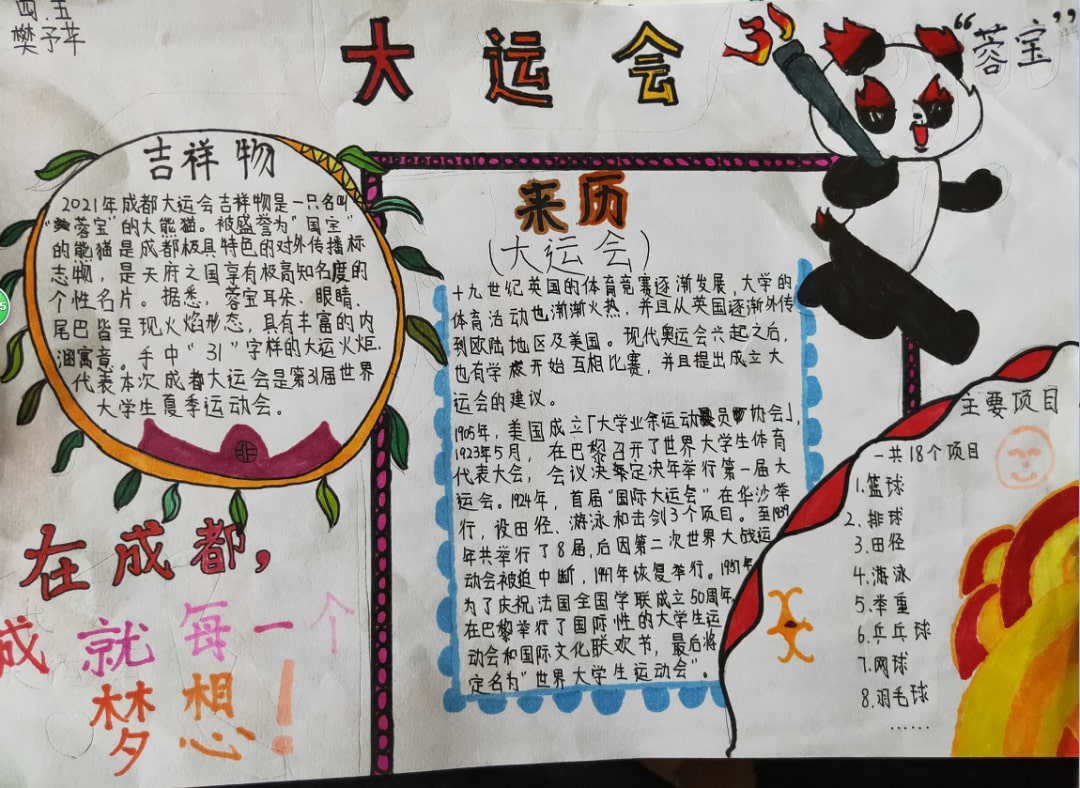 四.五
樊予芊
大运会
“蓉宝”
吉祥物
2021年成都大运会吉祥物是一只名叫
“蓉宝”的大熊猫。被盛誉为“国宝”
的熊猫是成都极具特色的对外传播标
志物，是天府之国享有极高知名度的
个性名片。据悉，蓉宝耳朵、眼睛、
尾巴皆呈现火焰形态，具有丰富的内
涵寓意。手中“31”字样的大运火炬，
代表本次成都大运会是第31届世界
大学生夏季运动会。
在成都，
成就每一个
梦想！
来历
（大运会）
十九世纪英国的体育竞赛逐渐发展，大学的
体育活动也渐渐火热，并且从英国逐渐外传
到欧陆地区及美国。现代奥运会兴起之后，
也有学校开始互相比赛，并且提出成立大
运会的建议。
1905年，美国成立「大学业余运动员协会」，
1923年5月，在巴黎召开了世界大学生体育
代表大会，会议决定决年举行第一届大
运会。1924年，首届“国际大运会”在华沙举
行，设田径、游泳和击剑3个项目。至1939
年共举行了8届，后因第二次世界大战运
动会被迫中断，1947年恢复举行。1957年
为了庆祝法国全国学联成立50周年
在巴黎举行了国际性的大学生运
动会和国际文化联欢节，最后将
定名为“世界大学生运动会”。
主要项目
一共18个项目
1.篮球
2.排球
3.田径
4.游泳
5.举重
6.乒乓球
7.网球
8.羽毛球
……